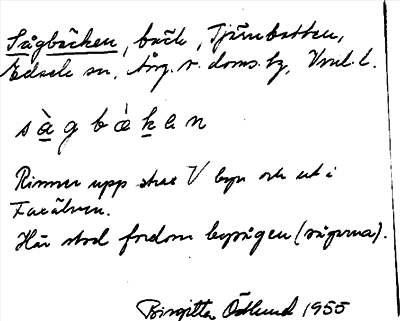 Sågbäcken, bäck, Tjärnbotten,
Edsele sn, Ång. v. doms. tg, Vnl. l.
sàgbàkan
Rinner upp strax V byn och ut i
Faxälven.
Här stod fordom bysågen (sågarna).
Birgitta Ödlund 1955